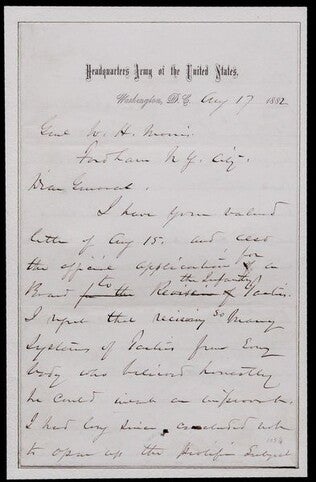 Headquarters Army of the United States.
Washington, D.C. Aug 17 1882
Genl W. H. Morris
Fordham N.Y. City.
Dear General.
I have your valued
letter of Aug 15. and also
the official application for an
Board to the Revision of the Infantry Tactics.
I that receiving so many
Systems of Tactics from Every
body who believed honestly
he could make an improvement
I had long since concluded not
to open up the prolific Subject